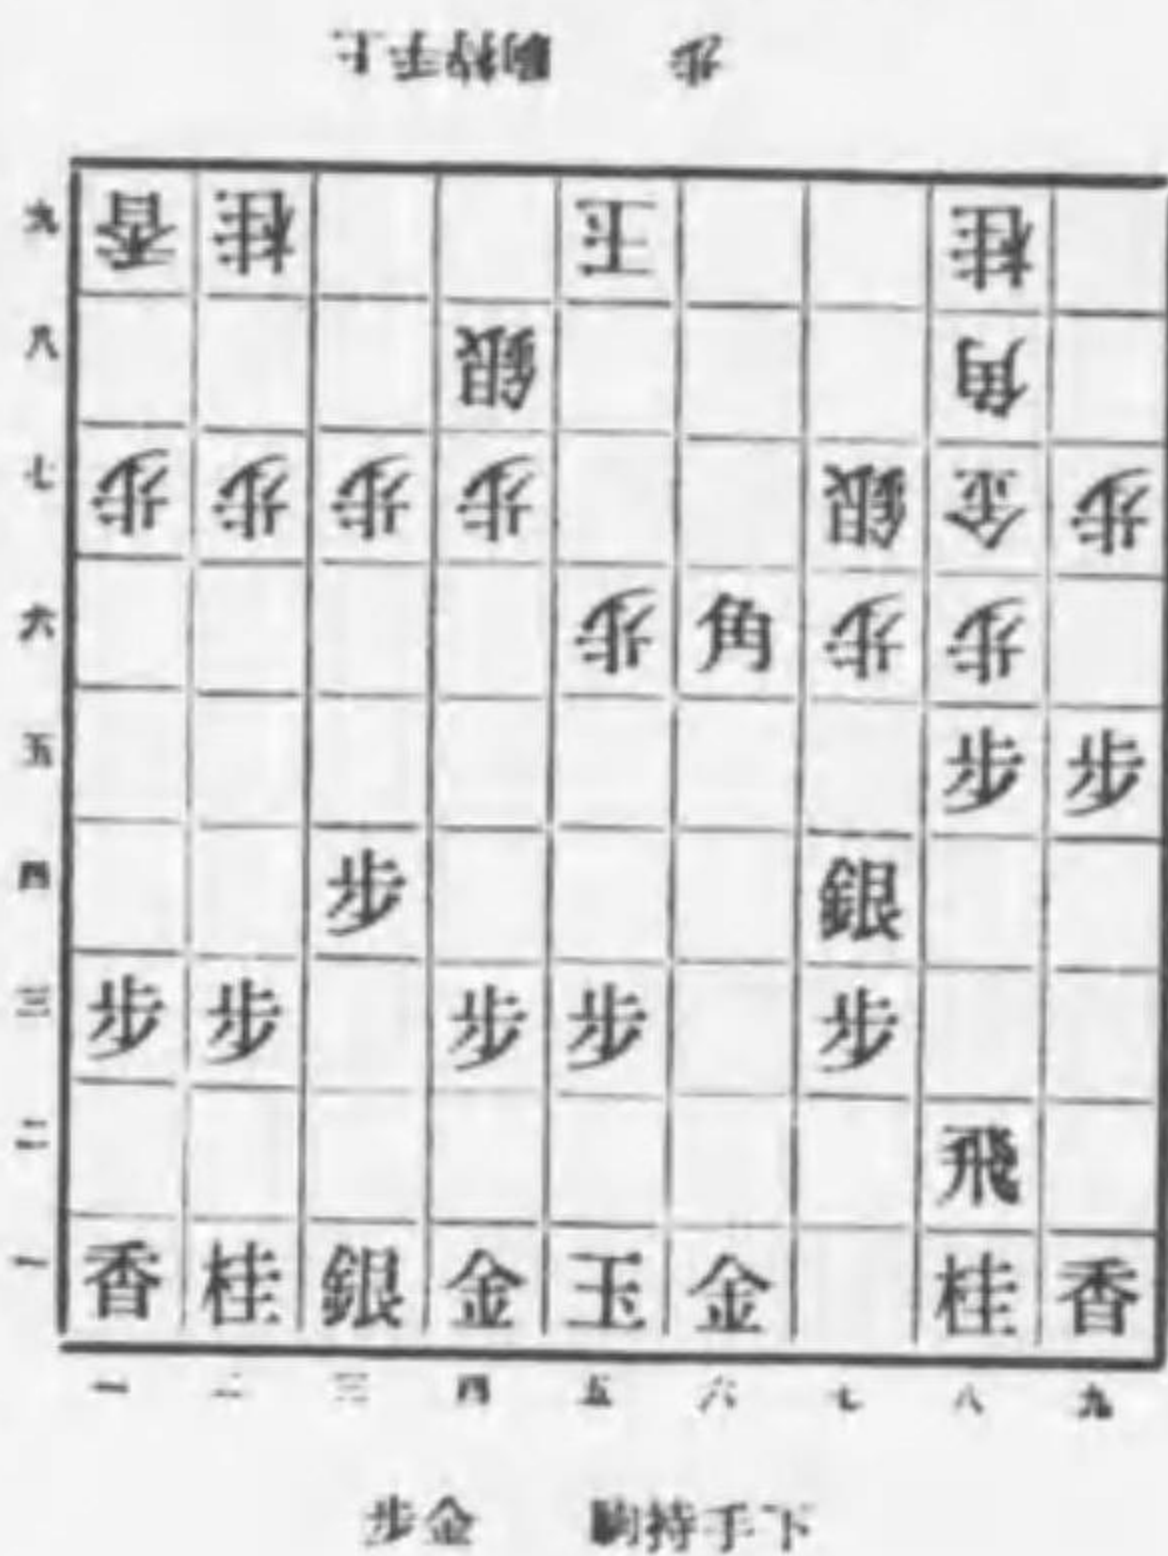 上手持駒 歩
九 香 桂 玉 桂
八 銀 角
七 歩 歩 歩 歩 銀 金 歩
六 歩 角 歩 歩
五 歩 歩
四 歩 銀
三 歩 歩 歩 歩 歩
二 飛
一 香 桂 銀 金 玉 金 桂 香
一 二 三 四 五 六 七 八 九
歩金 駒持手下